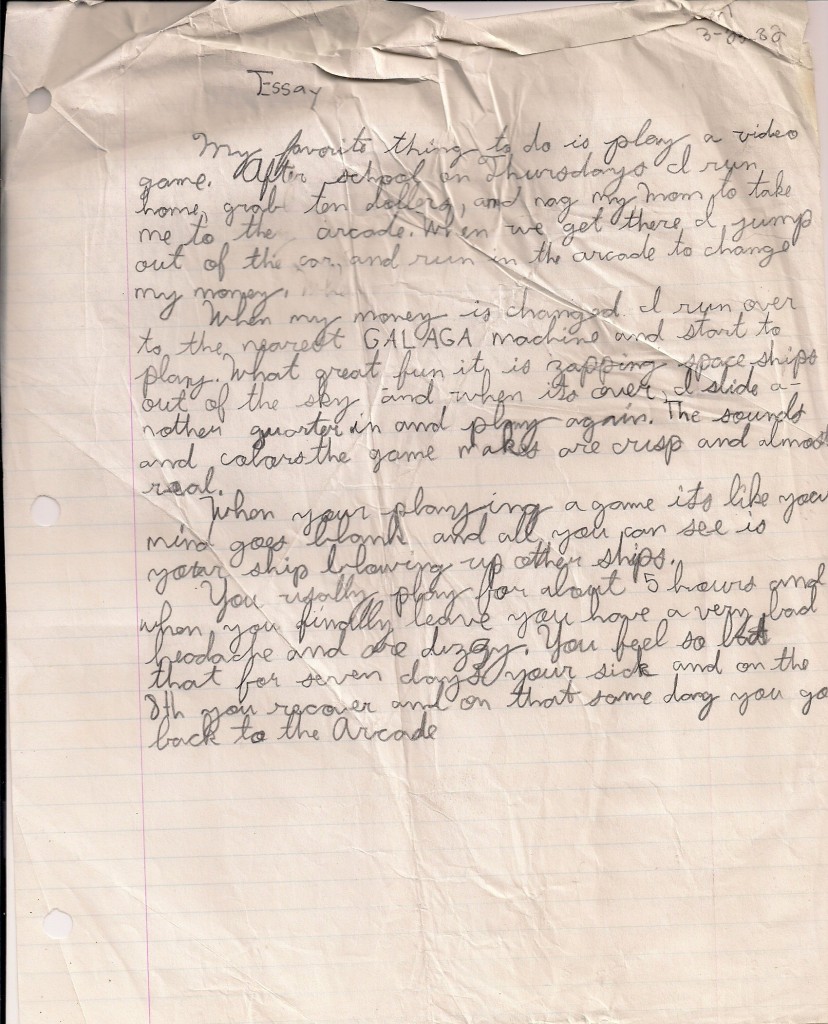 Essay
My favorite thing to do is play a video
game. After school on Thursdays I run
home, grab ten dollers, and nag my Mom to take
me to the arcade. When we get there I jump
out of the car, and run in the arcade to change
my money.
When my money is changed I run over
to the nearest GALAGA machine and start to
play. What great fun it is zapping space ships
out of the sky and when its over, I slide a-
nother quarter in and play again. The sounds
and colors the game makes are crisp and almost
real.
When your playing a game its like your
mind goes blank and all you can see is
your ship blowing up other ships.
You usally play for about 5 hours and
when you finally leave you have a very bad
headache and are dizzy. You feel so
that for seven days your sick and on the
8th you recover and on that same day you go
back to the Arcade